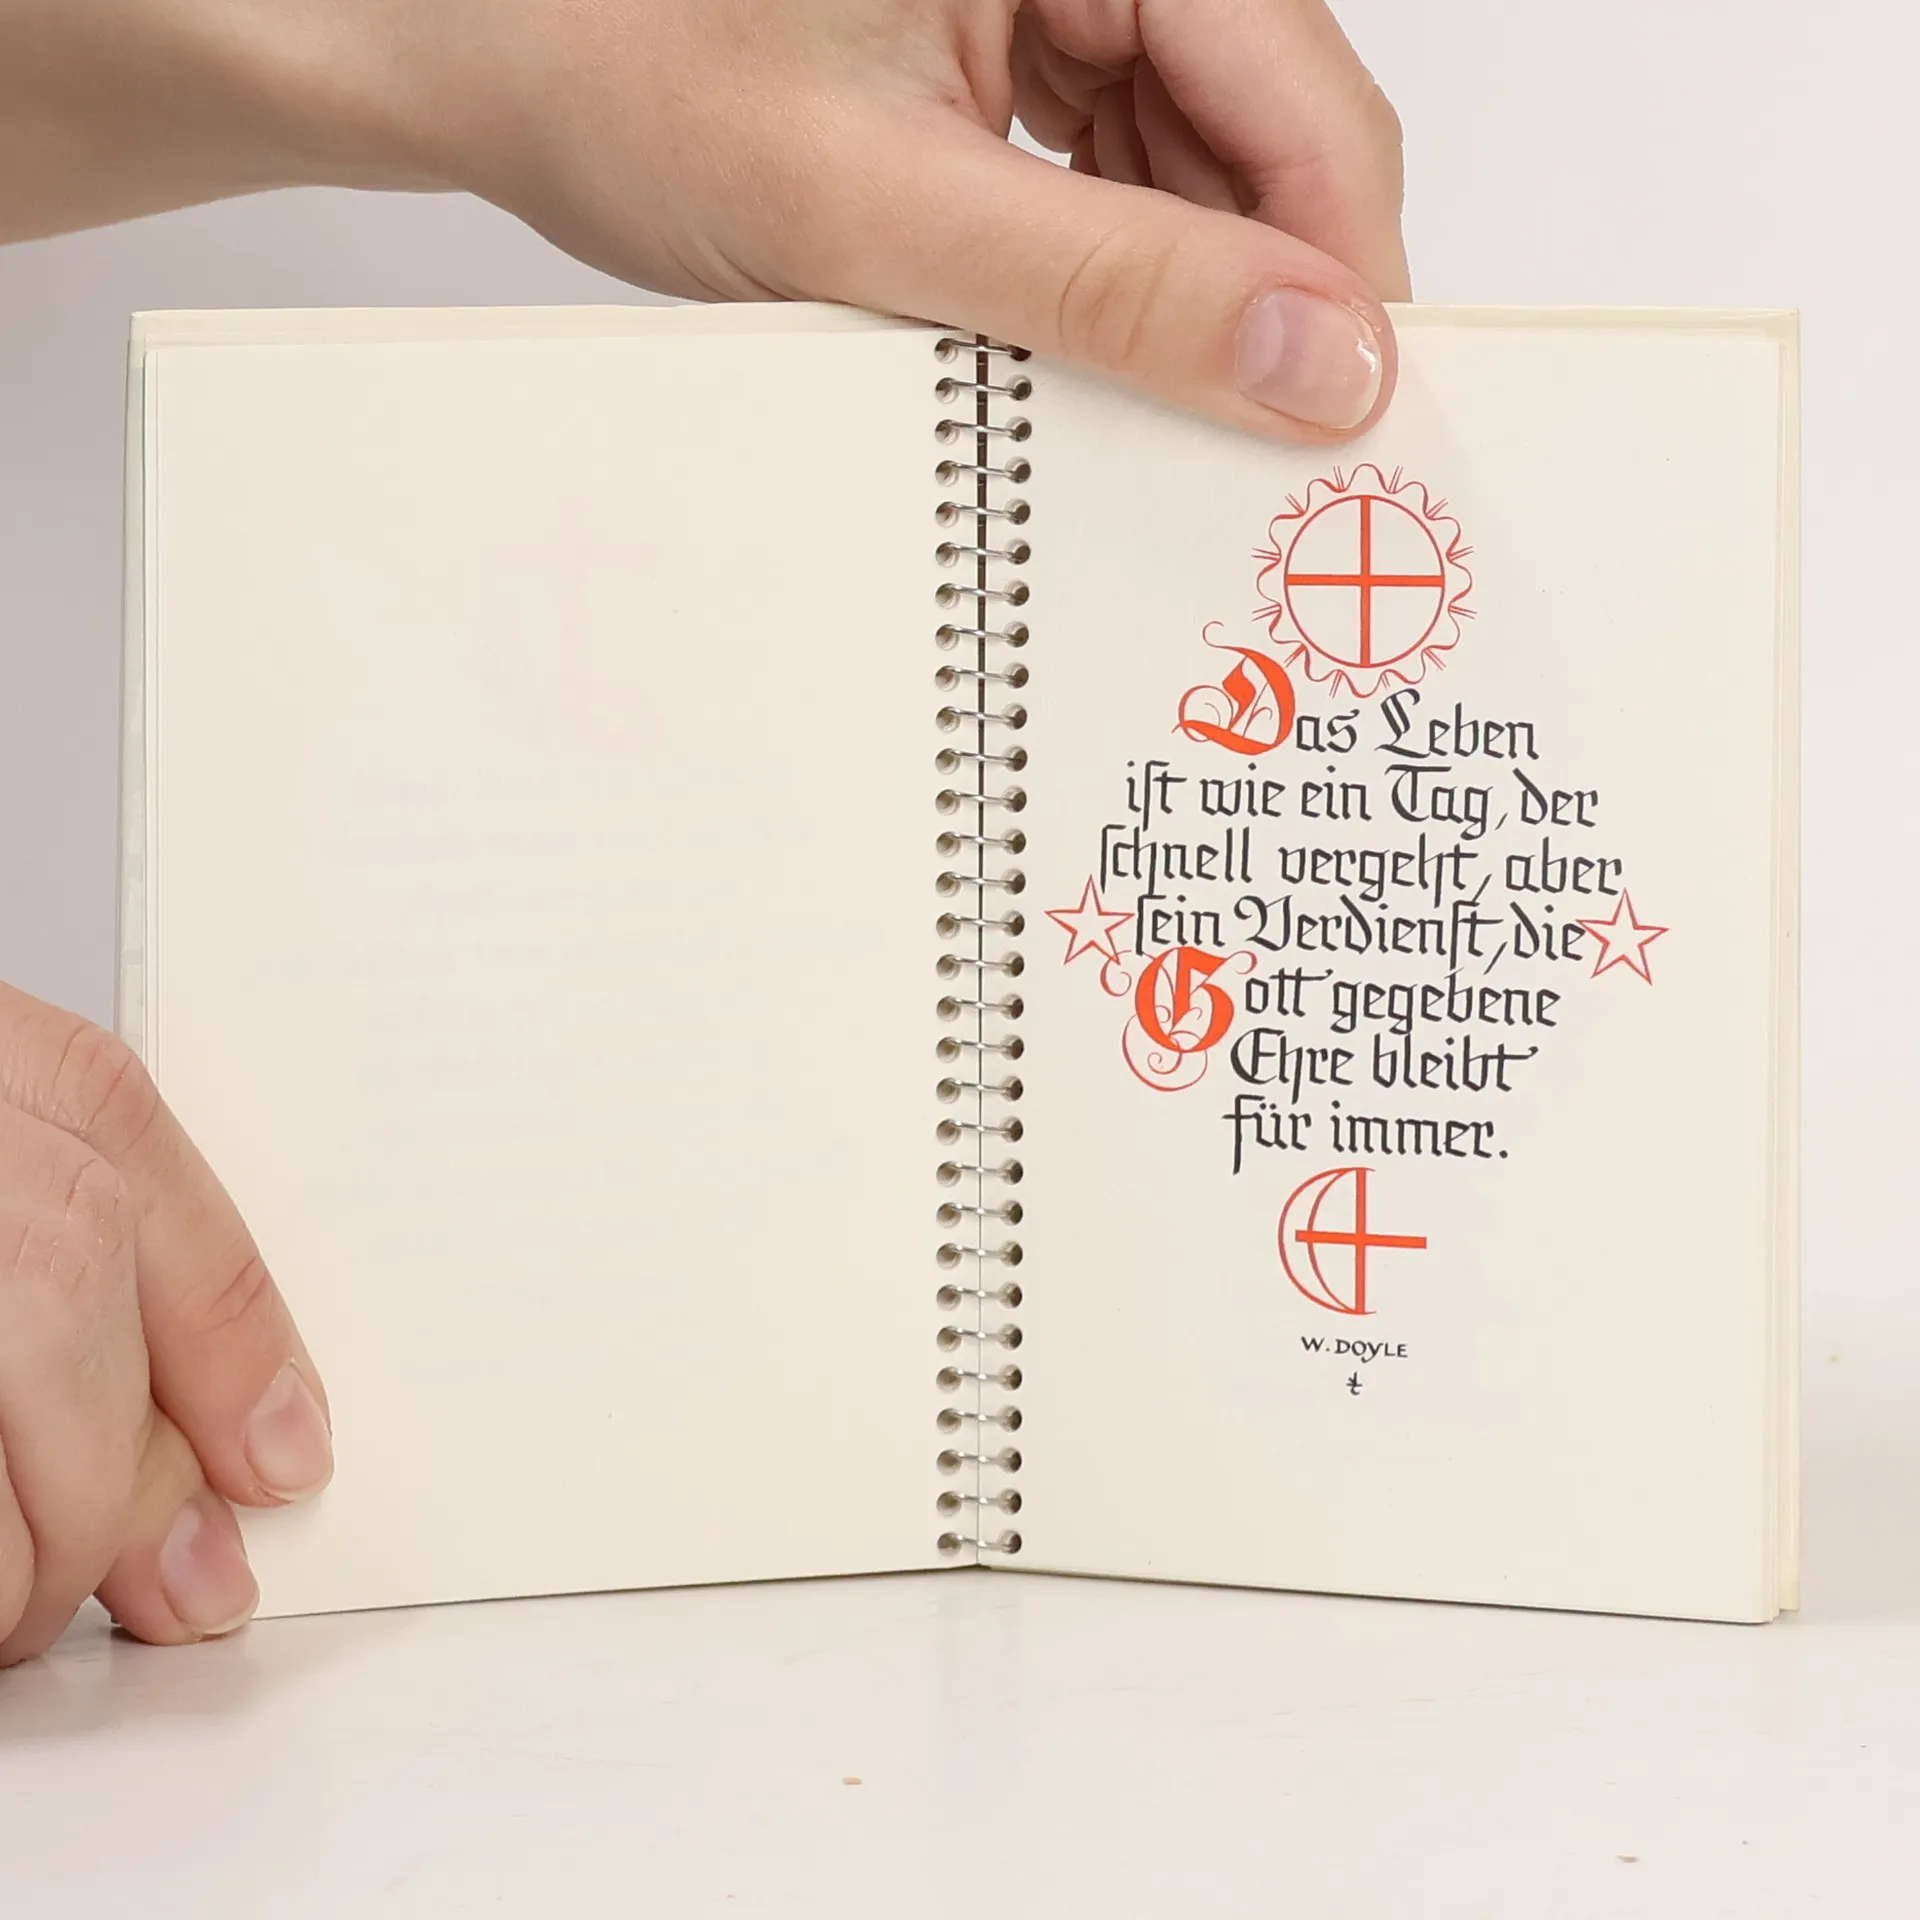 Das Leben
iſt wie ein Tag, der
ſchnell vergeht, aber
ſein Verdienſt, die
Gott gegebene
Ehre bleibt
für immer.
W. DOYLE